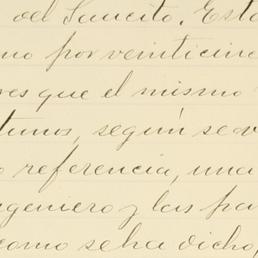 del Saucito. Esta
mo por veinticinc
res que el mismo
tunos, según se v
o referencia, una
ngeniero y las pa
como se ha dicho,